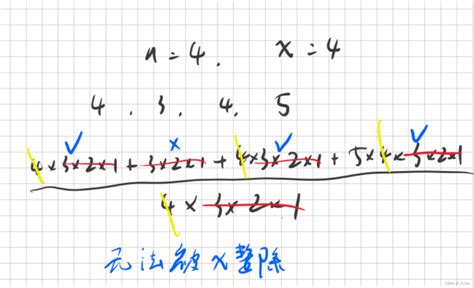 n = 4. x = 4
4 . 3 . 4 . 5
4×3×2×1 + 3×2×1 + 4×3×2×1 + 5×4×3×2×1
4 × 3×2×1
无法被x整除